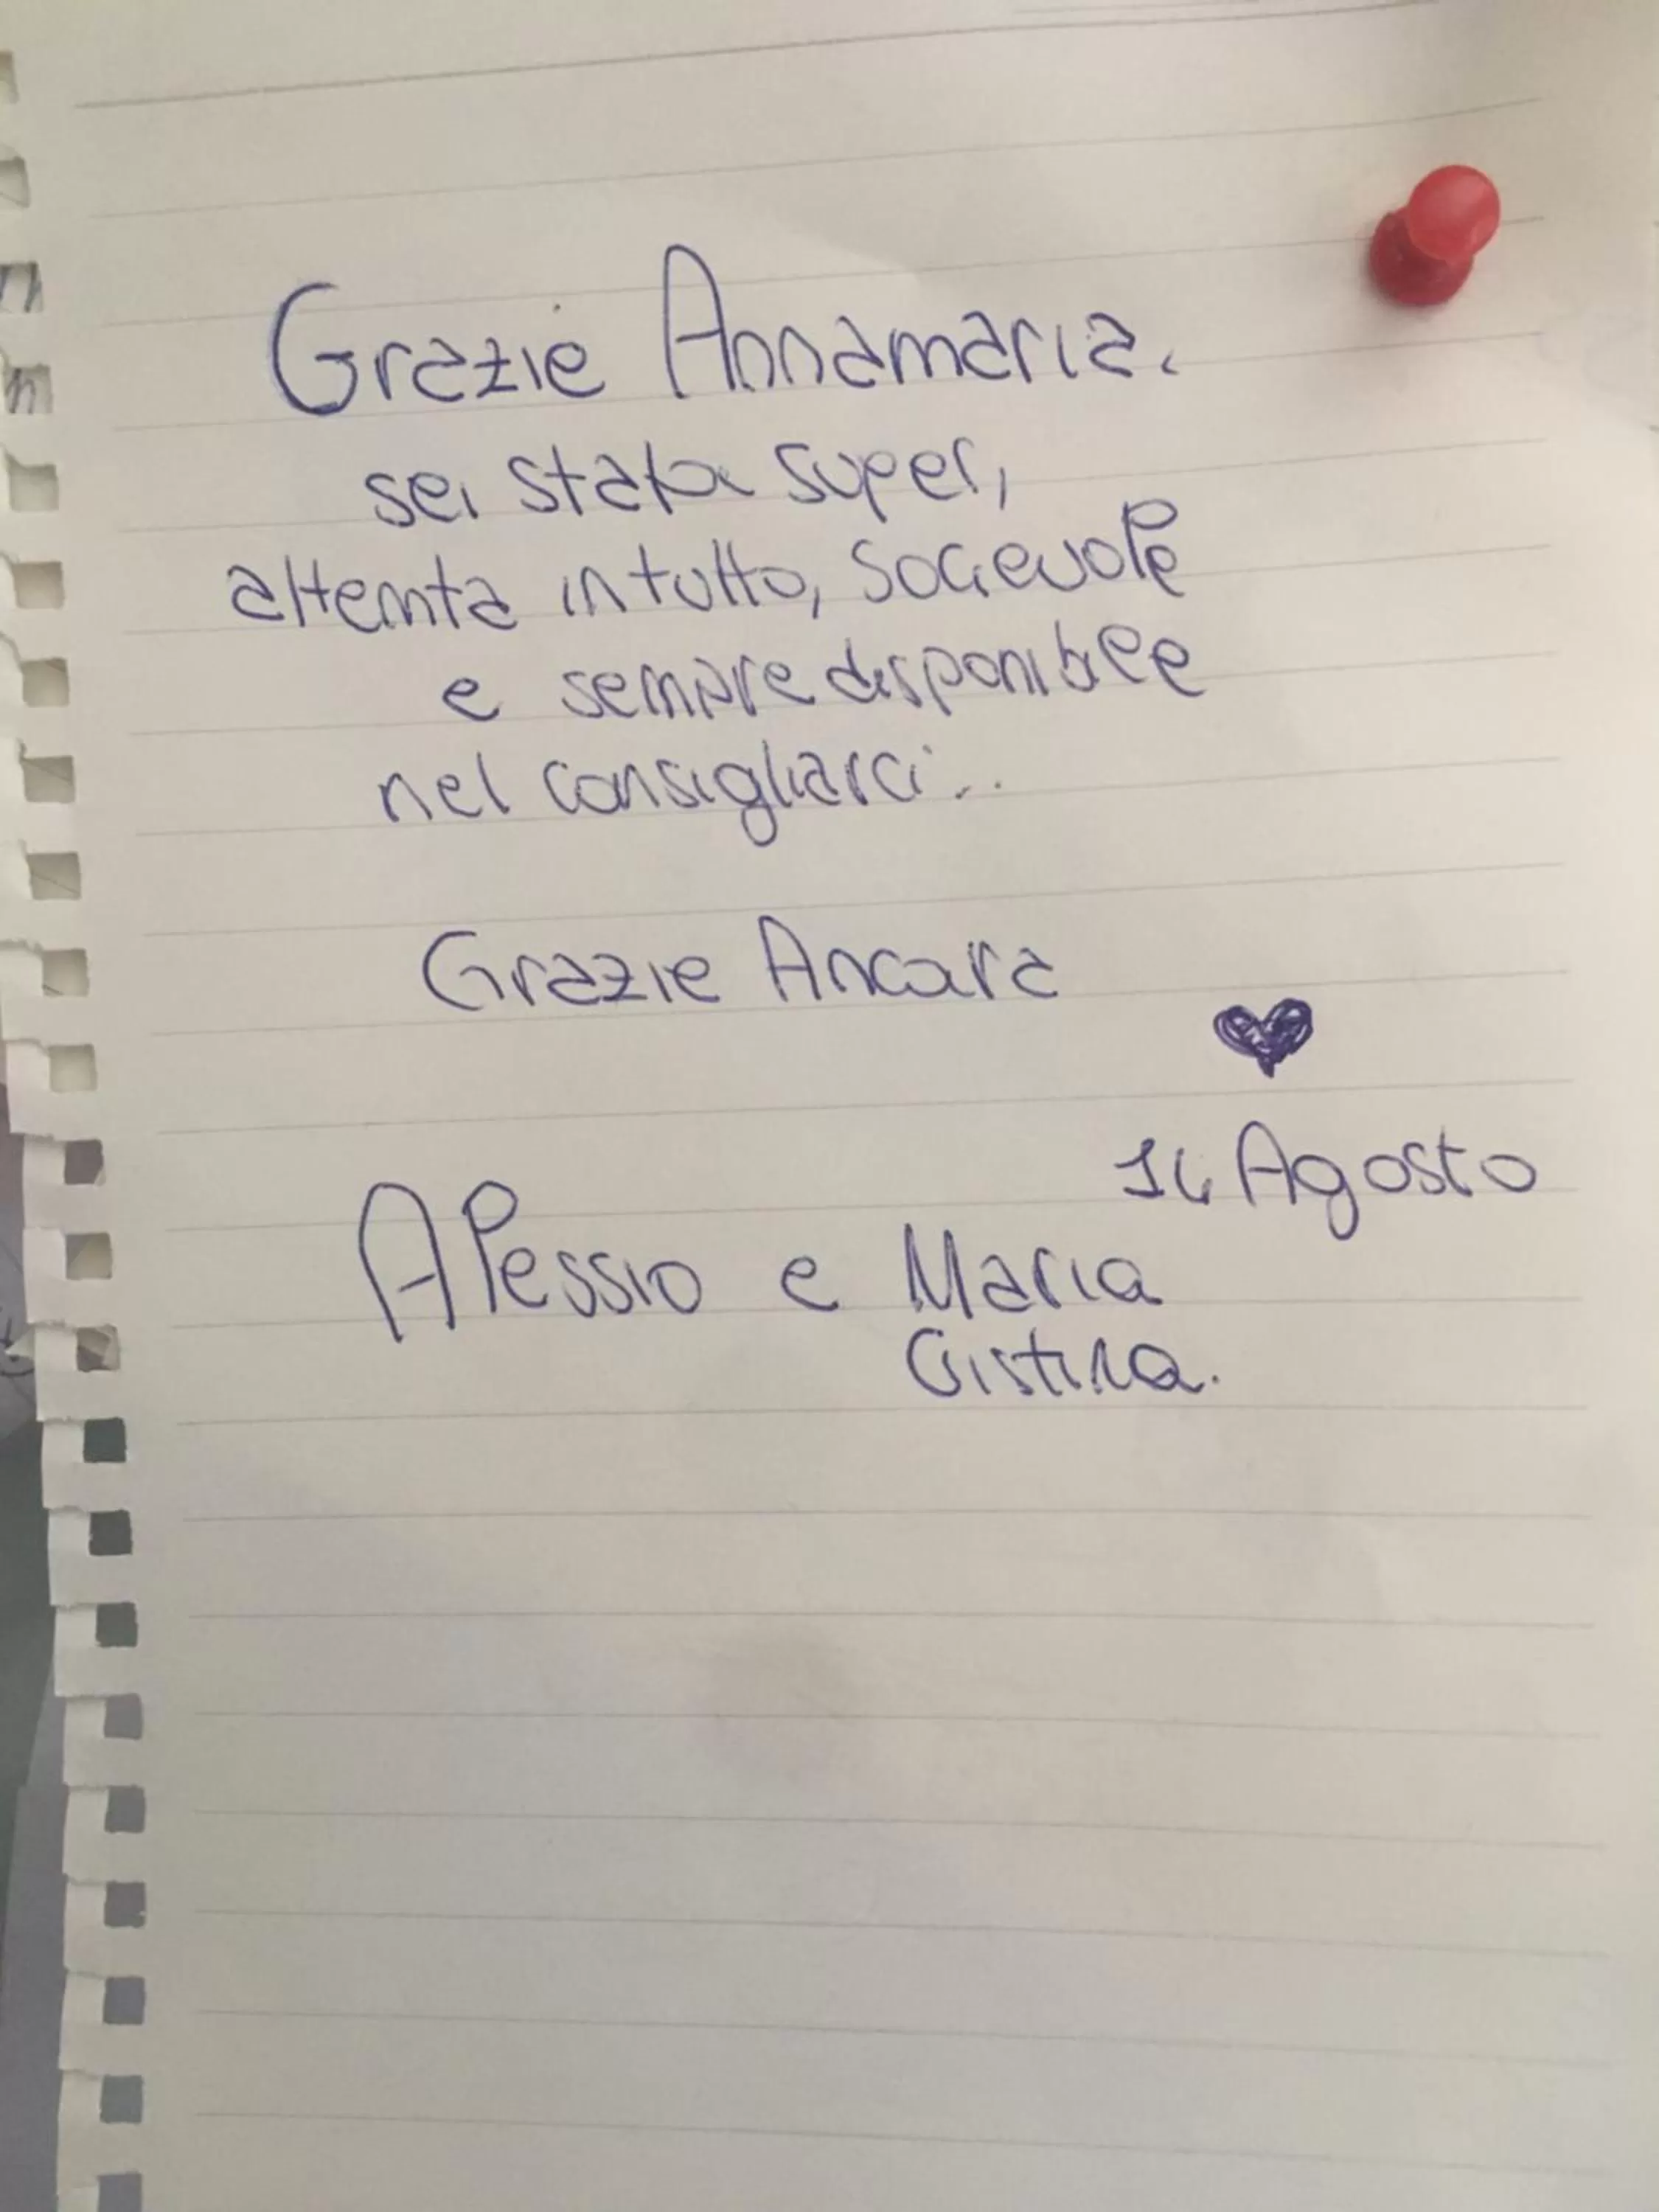 Grazie Annamaria.
sei stata super,
attenta in tutto, socievole
e sempre disponibile
nel consigliarci...
Grazie Ancora
14 Agosto
Alessio e Maria
Cristina.